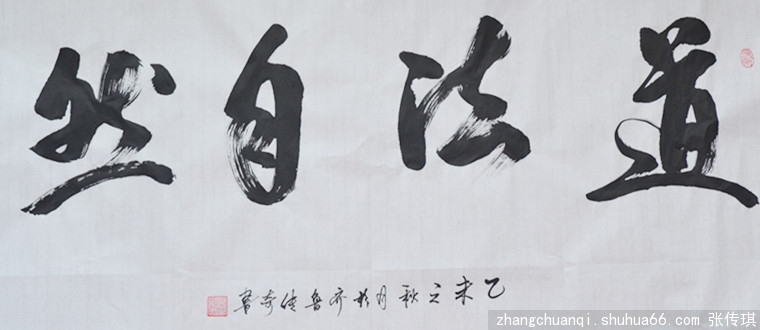 道法自然
乙未之秋月於齐鲁传奇书
zhangchuanqi.shuhua66.com 张传琪